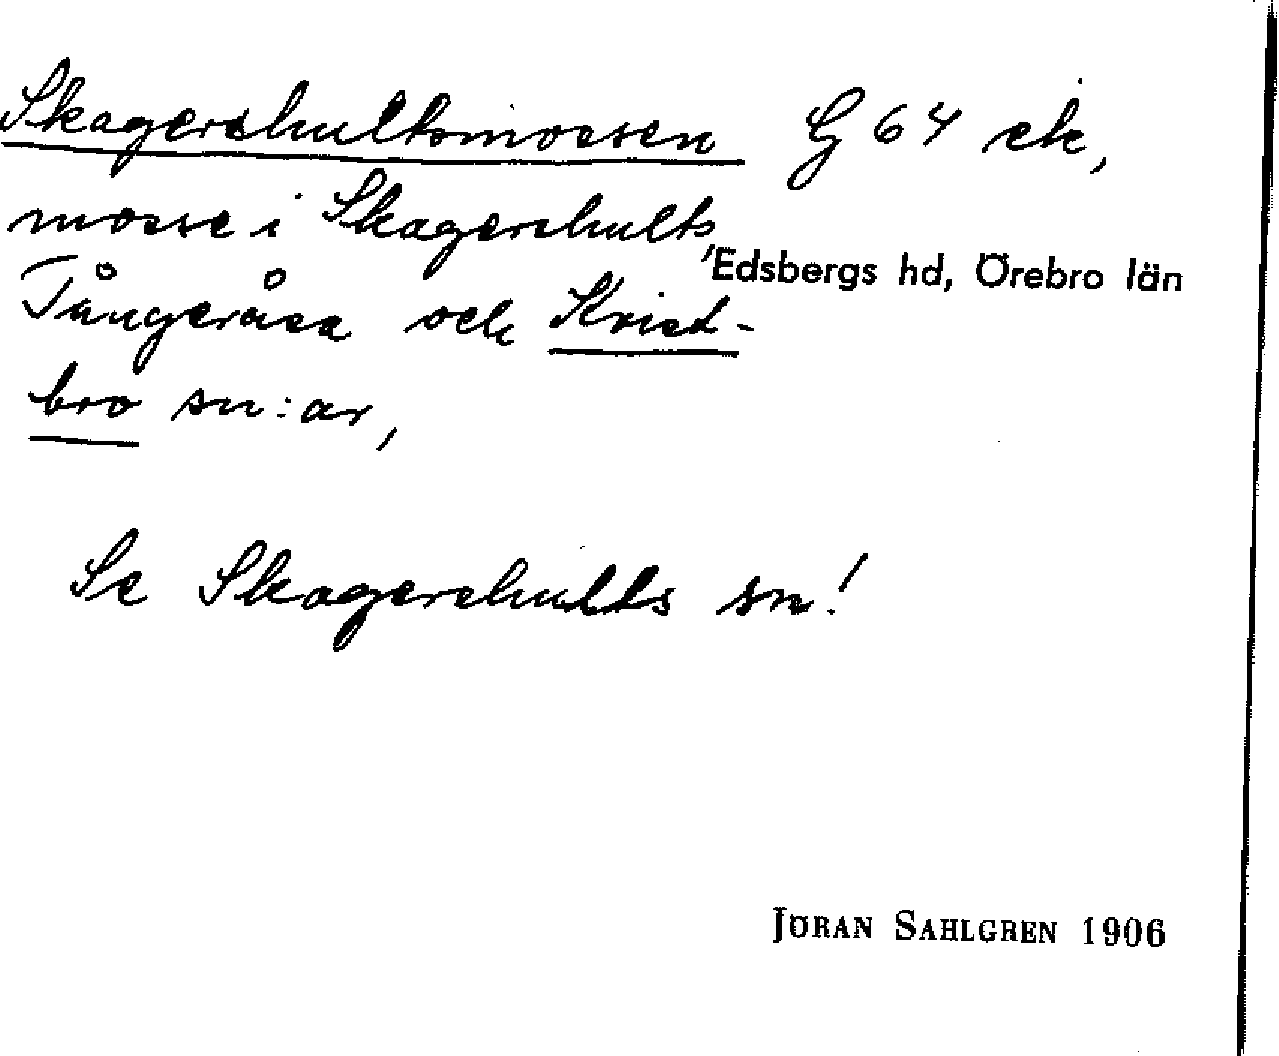 Skagershultsmossen G 64 ek,
mosse i Skagershults
Edsbergs hd, Örebro län
Tångeråsa och Krist-
bro sn:ar,
Se Skagershults sn!
JÖRAN SAHLGREN 1906